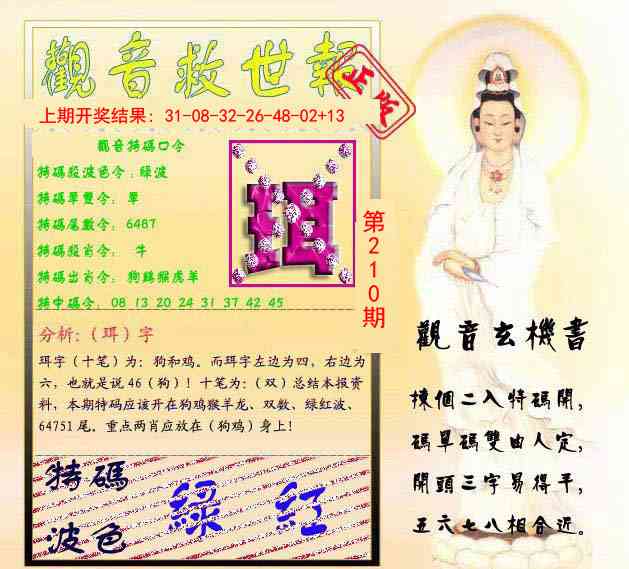 觀音救世報
正版
上期开奖结果: 31-08-32-26-48-02+13
觀音特碼口令
特碼殺波色令:绿波
特碼單雙令: 單
特碼尾數令: 6487
特碼殺肖令: 牛
特碼出肖令: 狗鷄猴虎羊
特中碼令: 08 13 20 24 31 37 42 45
珥
第210期
分析:（珥）字
珥字（十笔）为: 狗和鸡。而珥字左边为四，右边为
六，也就是说 46（狗）！十笔为:（双）总结本报资
料，本期特码应该开在狗鸡猴羊龙、双数、绿红波、
64751 尾。重点两肖应放在（狗鸡）身上！
特碼
波色
綠 紅
觀音玄機書
揀個二入特碼開，
碼單碼雙由人定，
開頭三字易得平，
五六七八相合近。